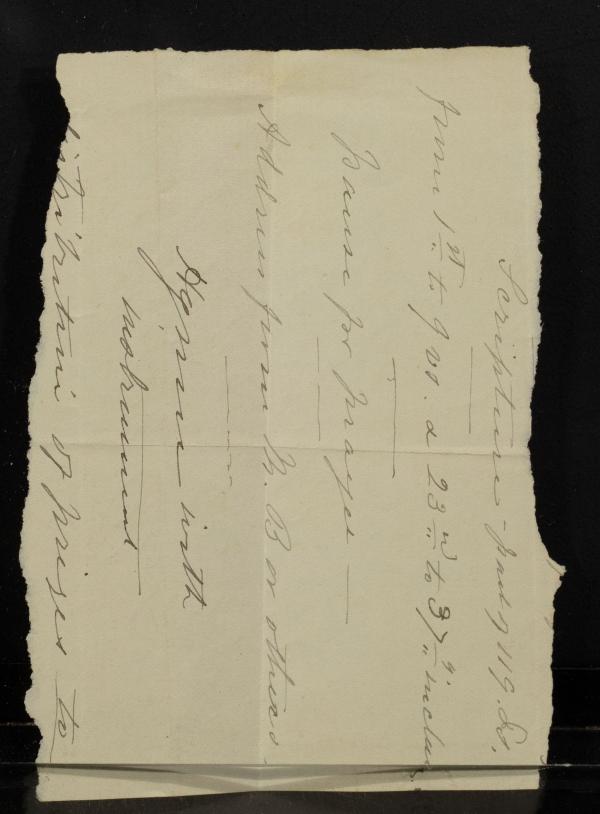 Scripture - part of 119. Ps.
from 1st to 9 vs. & 23rd to 37th inclus.
Pause for Prayer
Address from M. B or others
Hymn with
instrument
distribution of prizes to